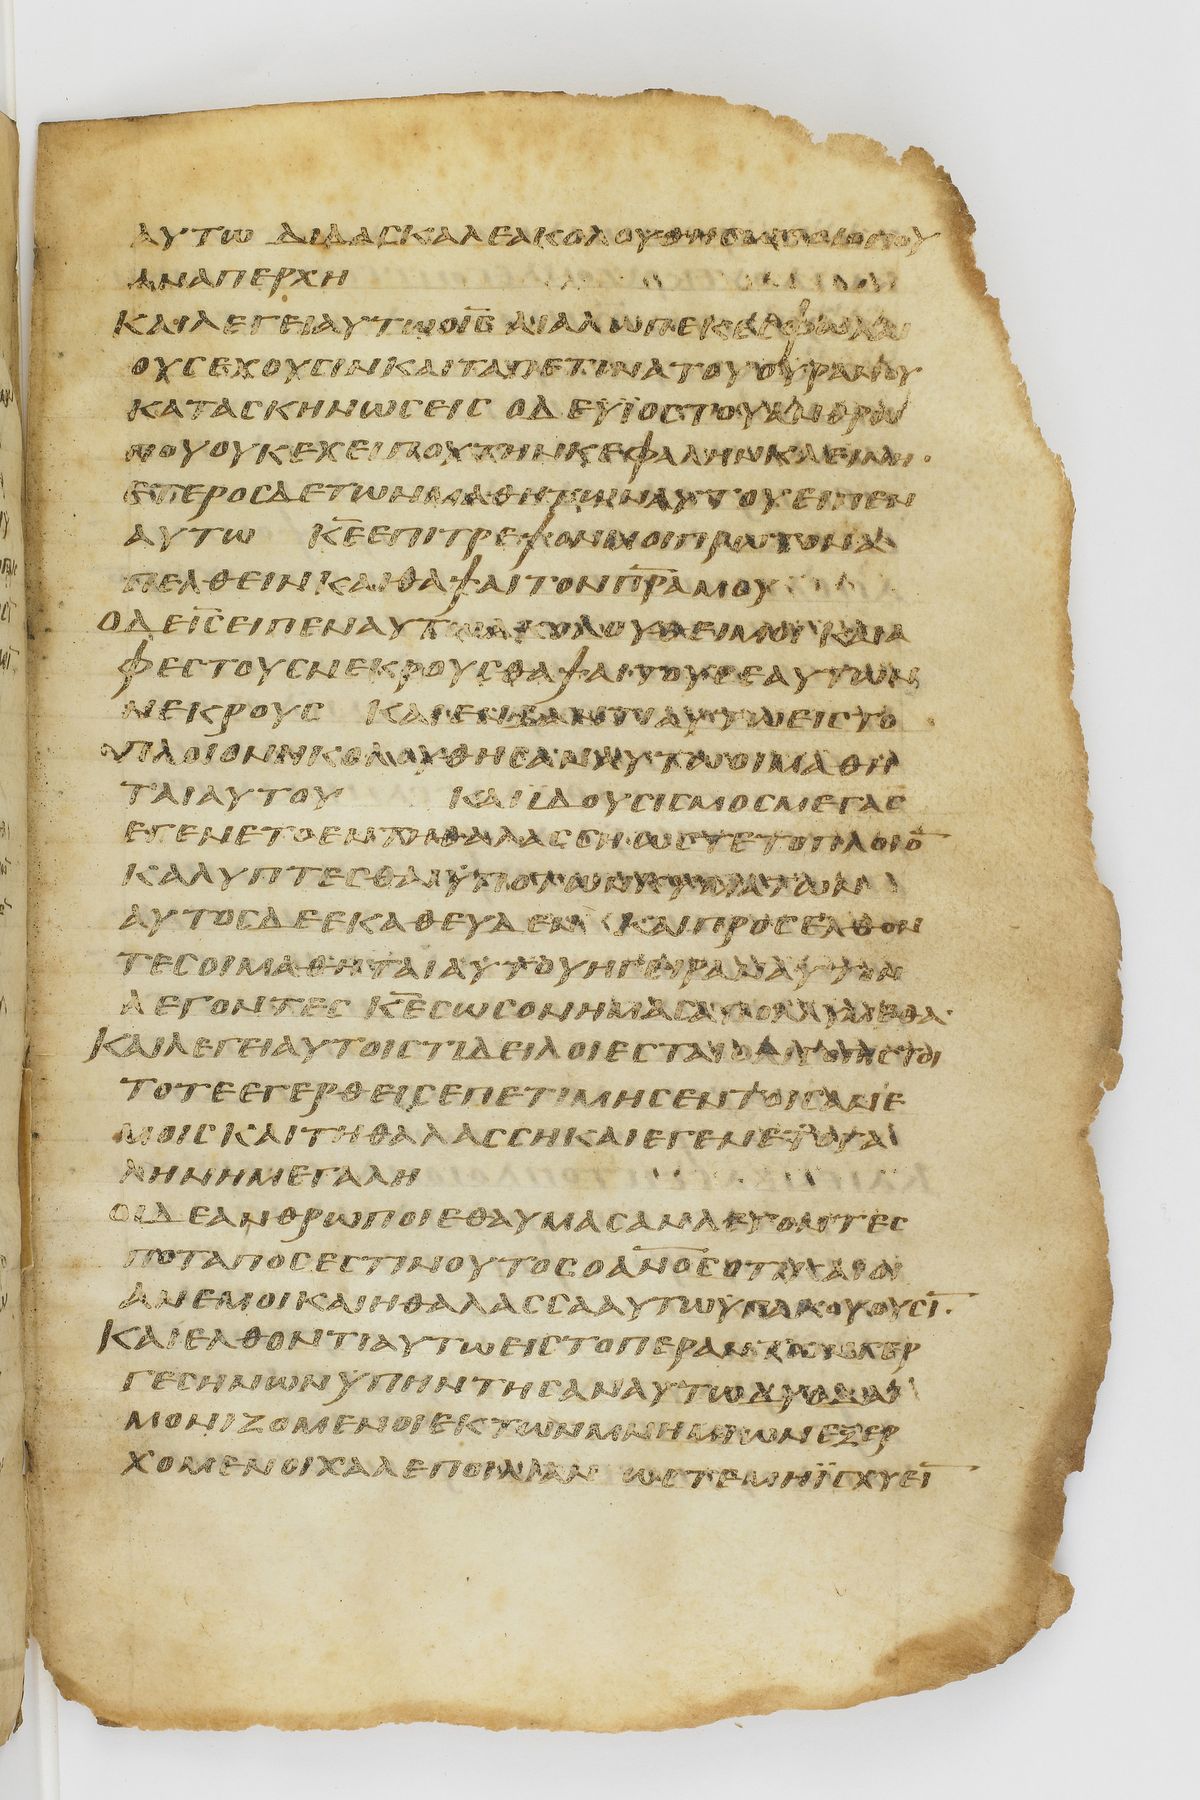 ΑΥΤΩ ΔΙΔΑϹΚΑΛΕΑΚΟΛΟΥΘΗϹΩϹΟΙΟΠΟΥ
ΑΝΑΠΕΡΧΗ
ΚΑΙΛΕΓΕΙΑΥΤΩΟΙϹ ΑΙΑΛΩΠΕΚΕϹΦΩΛΕ
ΟΥϹΕΧΟΥϹΙΝΚΑΙΤΑΠΕΤΙΝΑΤΟΥΟΥΡΑΝΟΥ
ΚΑΤΑϹΚΗΝΩϹΕΙϹ ΟΔΕΥΙΟϹΤΟΥΑΝΘΡΩ
ΠΟΥΟΥΚΕΧΕΙΠΟΥΤΗΝΚΕΦΑΛΗΝΚΛΕΙΝΗ
ΕΤΕΡΟϹΔΕΤΩΝΜΑΘΗΤΩΝΑΥΤΟΥΕΙΠΕΝ
ΑΥΤΩ Κ̅Ε̅ΕΠΙΤΡΕΨΟΝΜΟΙΠΡΩΤΟΝΑ
ΠΕΛΘΕΙΝΚΑΙΘΑΨΑΙΤΟΝΠ̅Ρ̅ΑΜΟΥ
ΟΔΕΙ̅Ϲ̅ΕΙΠΕΝΑΥΤΩΑΚΟΛΟΥΘΕΙΜΟΙΚΑΙΑ
ΦΕϹΤΟΥϹΝΕΚΡΟΥϹΘΑΨΑΙΤΟΥϹΕΑΥΤΩΝ
ΝΕΚΡΟΥϹ ΚΑΙΕΜΒΑΝΤΙΑΥΤΩΕΙϹΤΟ
ΠΛΟΙΟΝΗΚΟΛΟΥΘΗϹΑΝΑΥΤΩΟΙΜΑΘΗ
ΤΑΙΑΥΤΟΥ ΚΑΙΙΔΟΥϹΙϹΜΟϹΜΕΓΑϹ
ΕΓΕΝΕΤΟΕΝΤΗΘΑΛΑϹϹΗΩϹΤΕΤΟΠΛΟΙΟ̅
ΚΑΛΥΠΤΕϹΘΑΙΥΠΟΤΩΝΚΥΜΑΤΩΝ
ΑΥΤΟϹΔΕΕΚΑΘΕΥΔΕΝ ΚΑΙΠΡΟϹΕΛΘΟΝ
ΤΕϹΟΙΜΑΘΗΤΑΙΑΥΤΟΥΗΓΕΙΡΑΝΑΥΤΟΝ
ΛΕΓΟΝΤΕϹ Κ̅Ε̅ϹΩϹΟΝΗΜΑϹΑΠΟΛΛΥΜΕΘΑ
ΚΑΙΛΕΓΕΙΑΥΤΟΙϹΤΙΔΕΙΛΟΙΕϹΤΑΙΟΛΙΓΟΠΙϹΤΟΙ
ΤΟΤΕΕΓΕΡΘΕΙϹΕΠΕΤΙΜΗϹΕΝΤΟΙϹΑΝΕ
ΜΟΙϹΚΑΙΤΗΘΑΛΑϹϹΗΚΑΙΕΓΕΝΕΤΟΓΑ
ΛΗΝΗΜΕΓΑΛΗ
ΟΙΔΕΑΝΘΡΩΠΟΙΕΘΑΥΜΑϹΑΝΛΕΓΟΝΤΕϹ
ΠΟΤΑΠΟϹΕϹΤΙΝΟΥΤΟϹΟΑ̅Ν̅Ο̅Ϲ̅ΟΤΙΚΑΙΟΙ
ΑΝΕΜΟΙΚΑΙΗΘΑΛΑϹϹΑΑΥΤΩΥΠΑΚΟΥΟΥϹΙ̅
ΚΑΙΕΛΘΟΝΤΙΑΥΤΩΕΙϹΤΟΠΕΡΑΝ
ΓΕϹΗΝΩΝΥΠΗΝΤΗϹΑΝΑΥΤΩΔΥΟΔΑΙ
ΜΟΝΙΖΟΜΕΝΟΙΕΚΤΩΝΜΝΗΜΙΩΝΕΞΕΡ
ΧΟΜΕΝΟΙΧΑΛΕΠΟΙΛΙΑΝ ΩϹΤΕΜΗΪϹΧΥΕΙ̅